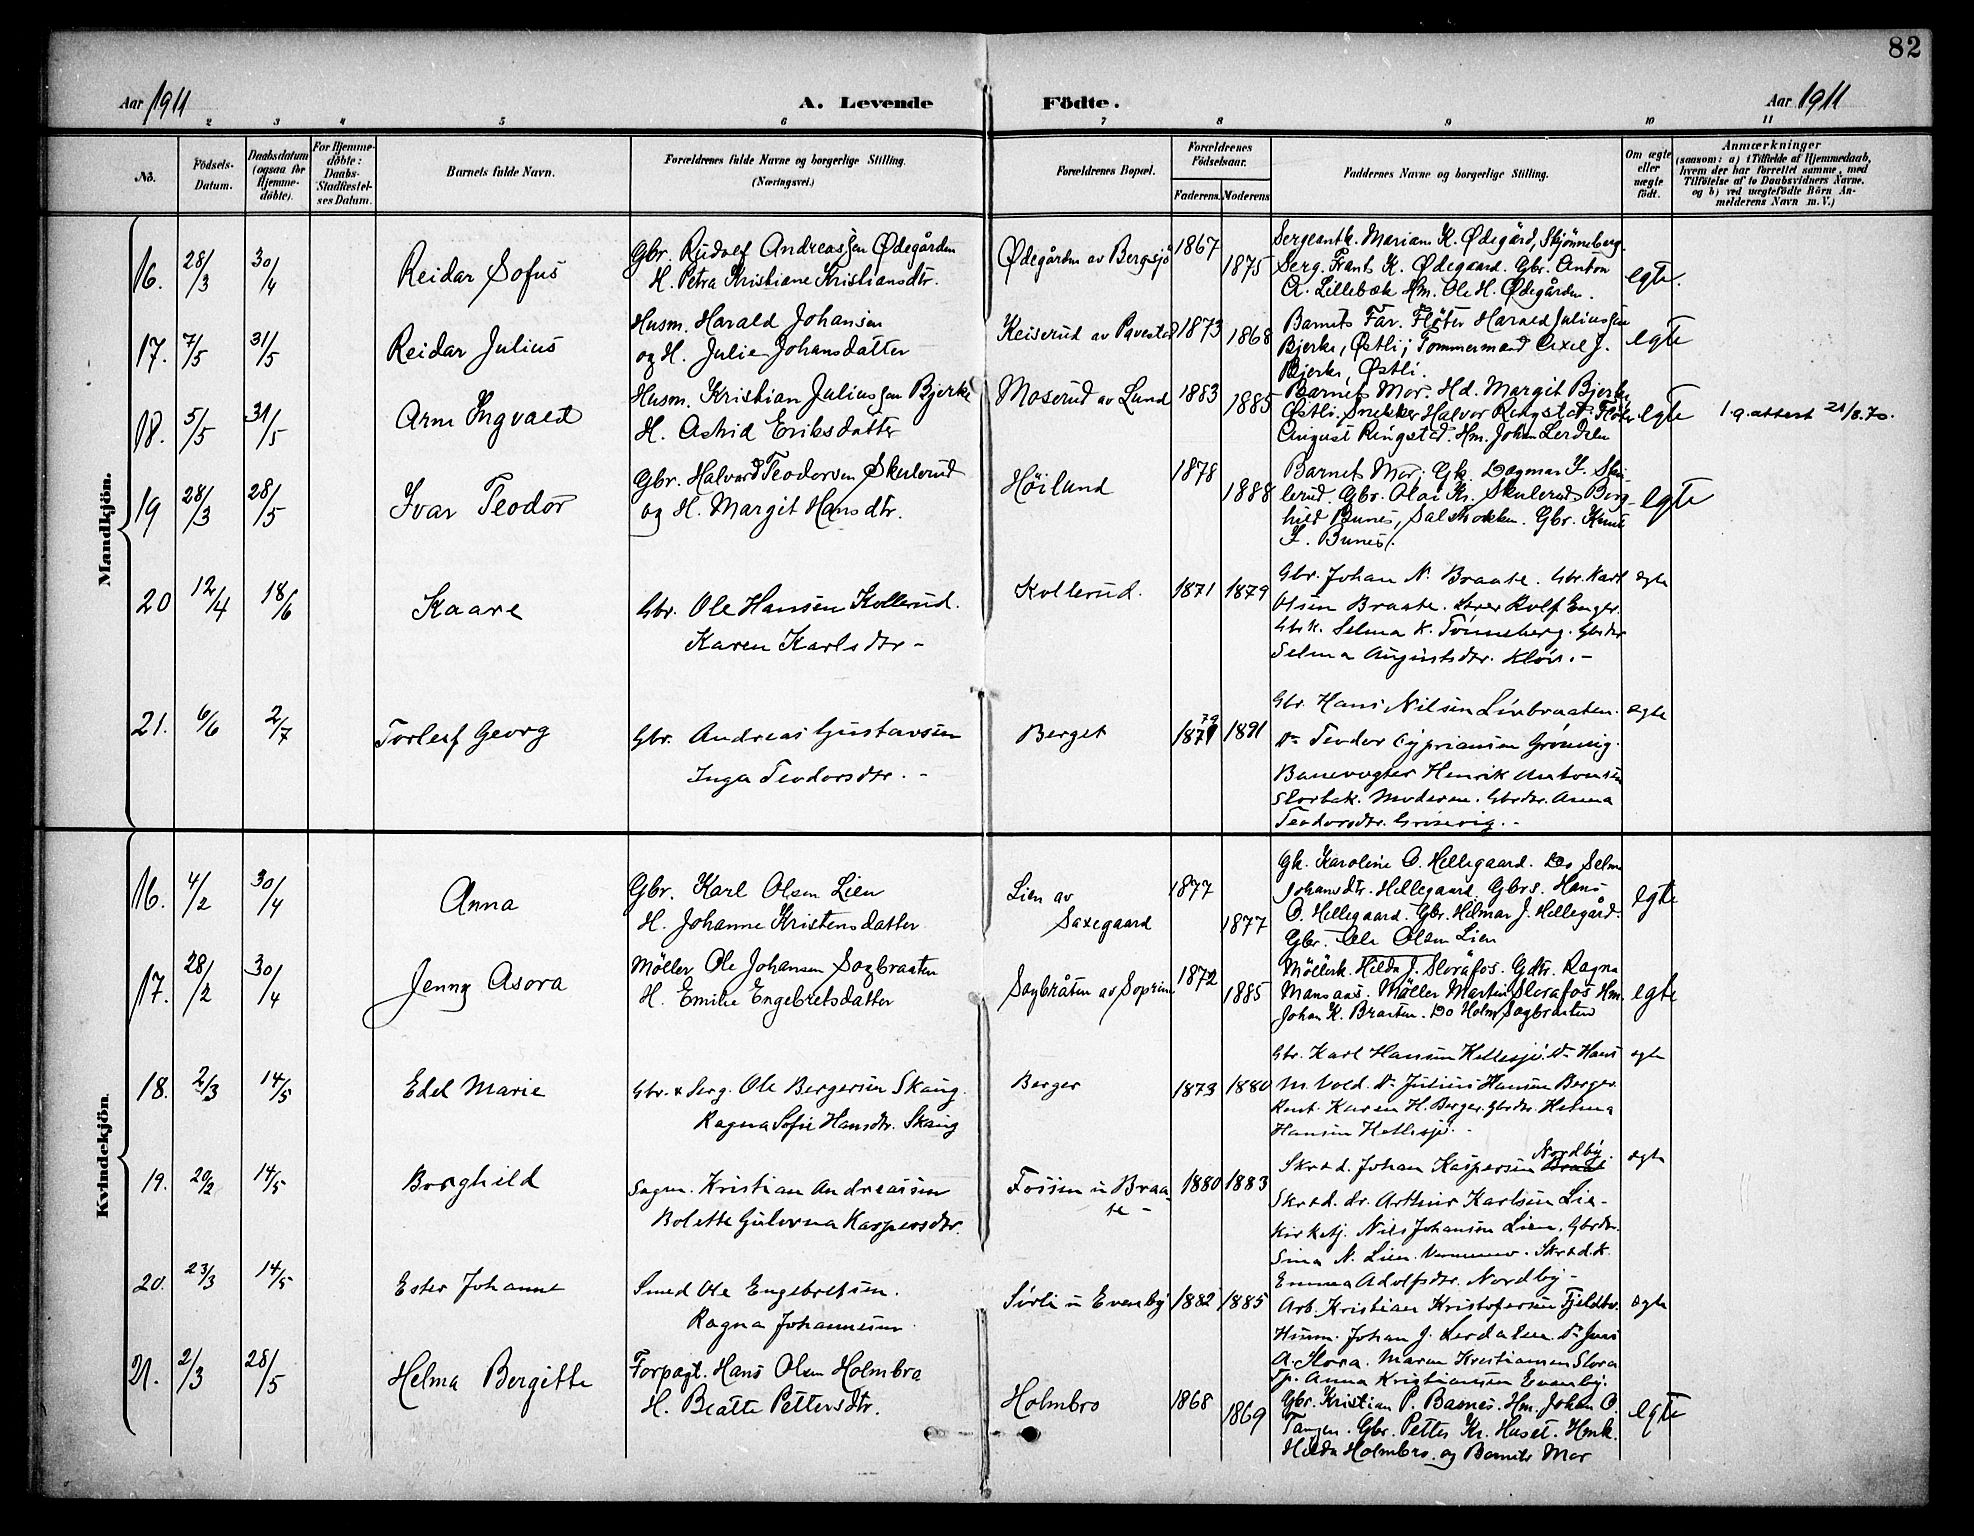 82
Aar 1911 A. Levende Födte. Aar 1911
2 3 4 5 6 7 8 9 10 11
No. Födsels-Datum. Daabsdatum (ogsaa for Hjemme-döbte). For Hjemme-döbte: Daabs-Stadfæstel-ses Datum. Barnets fulde Navn. Forældrenes fulde Navne og borgerlige Stilling. (Næringsvei.) Forældrenes Bopæl. Forældrenes Födselsaar. Faderens. Moderens. Faddernes Navne og borgerlige Stilling. Om ægte eller uægte födt. Anmærkninger (saasom: a) i Tilfælde af Hjemmedaab, hvem der har forrettet samme, med Tilföielse af to Daabsvidners Navne, og b) ved uægtefödte Börn An-melderens Navn m. V.)
Mandkjön.
16. 28/3 30/4 Reidar Sofus Gbr. Rudolf Andreassen Ødegården Ødegården av Bergsjø 1867 Sergeantk. Mariam K. Ødegård, Skjønneberg.
H. Petra Kristiane Kristiansdtr. 1875 Serg. Frants K. Ødegaard. Gbr. Anton egte.
A. Lillebæk Hm. Ole H. Ødegården.
17. 7/5 31/5 Reidar Julius Husm. Harald Johansen Keiserud av Pavestad 1873 Barnets Far. Fløter Harald Juliussen
og H. Julie Johansdatter 1868 Bjerke, Østli; Tømmermand Axel J. egte
Bjerke, Østli.
18. 5/5 31/5 Arne Ingvald Husm. Kristian Juliussen Bjerke Moserud av Lund 1883 Barnets Mor. Hd. Margit Bjerke
H. Astrid Eriksdatter 1885 Østli. Snekker Halvor Ringstad. Fløter egte l.g. attest 21/8.70.
August Ringstad. Hm. Johan Lerdalen
19 28/3 28/5 Ivar Teodor Gbr. Halvard Teodorsen Skulerud Höilund 1878 Barnets Mor; Gk. Dagmar I. Sku-
og H. Margit Hansdtr. 1888 lerud. Gbr. Olai Kr. Skulerud. Borg- egte
hild Bunes, Gbr. Knut
I. Bunes.
20 12/4 18/6 Kaare Gbr. Ole Hansen Kollerud. Kollerud. 1871 1879 Gbr. Johan N. Braate. Gbr. Karl ægte
Karen Karlsdtr – Olsen Braate. Rolf Enger.
Gbrk. Selma K. Tönneberg. Gbrdtr
Selma Augustsdtr. –
21. 6/6 2/7 Torleif Georg Gbr. Andreas Gustavsen Berget 1879 1891 Gbr. Hans Nilsen Linbraaten. ægte
Inga Teodorsdtr. – Do Teodor Cyprianssen Grönvig.
Banevogter Henrik Antonsen
Slorbak. Moderen. Gbrdtr. Anna
Teodorsdtr. Grönvig. –
Kvindekjön.
16. 4/2 30/4 Anna Gbr. Karl Olsen Lien Lien av 1877 Gk. Karoline O. Hellegaard. Do Selma
H. Johanne Kristensdatter Saxegaard 1877 Johansdtr. Hellegaard Gbrs. Hans egte
O. Hellegaard. Gbr. Hilmar J. Hellegård.
Gbr. Ole Olsen Lien
17. 28/2 30/4 Jenny Asora Møller Ole Johansen Sagbraaten Sagbråten av Soprim 1872 Møllerk. Hilda J. Slorafos. Gdtr. Ragna
H. Emilie Engebretsdatter 1885 Mansaas. Møller Martin Slorafos Hm. egte
Johan K. Braaten. Do Holm Sagbraaten
18. 2/3 14/5 Edel Marie Gbr. & Serg. Ole Bergersen Skaug. Berger 1873 1880 Gbr. Karl Hansen Hellesjö. Do Hans ægte
Ragna Sofie Hansdtr. Skaug M. Vold. Do Julius Hansen Berger.
Karen H. Berger. Gbrdtr. Helma
Hansen Hellesjö. –
19. 20/2 14/5 Borghild Sagm. Kristian Andreassen Fossen u Braa- 1880 1883 Skræd. Johan Kaspersen Nordby. ægte
Bolette Gulovna Kaspersdtr. te – Skræd. dr. Arthur Karlsen Lie –
Kirketj. Nils Johansen Lien. Gbrdtr.
Sina N. Lien. Skræd.k.
20. 23/3 14/5 Ester Johanne Smed Ole Engebretsen. Emma Adolfsdtr. Nordby –
Ragna Johannesen Sörli u Evenby 1882 1885 Arb. Kristian Kristofersen Fjeldbr. ægte
Husm. Johan J. Lerdalen. Do Jens
A. Slora. Maren Kristiansen Slora
Tp. Anna Kristiansen Evenby.
21. 2/3 28/5 Helma Bergitte Forpagt. Hans Olsen Holmbro Holmbro 1868 Gbr. Kristian P. Basnes. Hm. Johan O.
H. Beate Pettersdtr. 1869 Tangen. Gbr. Petter Kr. Huset. Hmk. egte
Hilda Holmbro og Barnets Mor